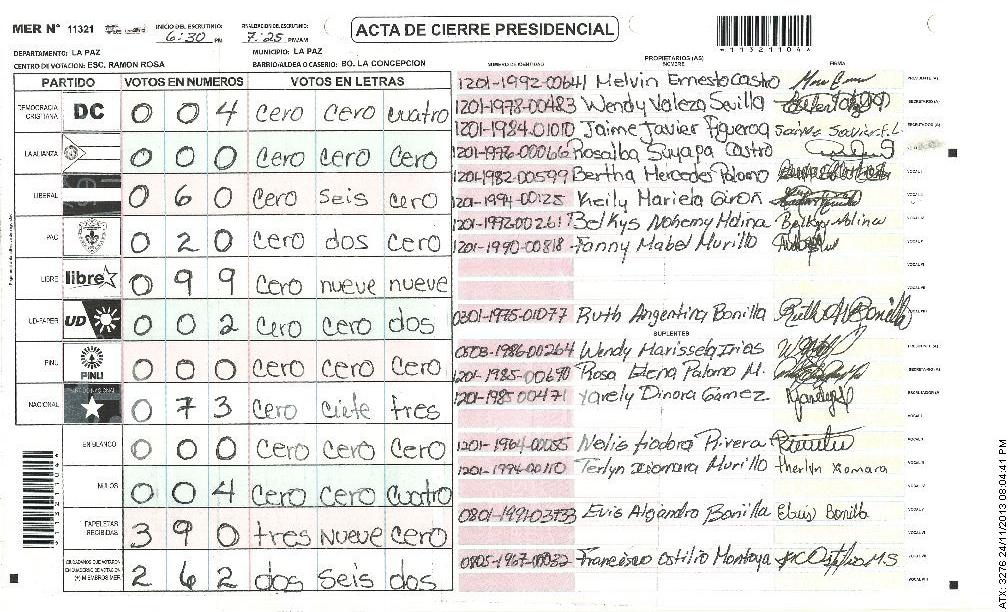 MER Nº 11321 INICIO DEL ESCRUTINIO: 6:30 PM FINALIZACION DEL ESCRUTINIO: 7:25 PM/AM ACTA DE CIERRE PRESIDENCIAL 113211044
DEPARTAMENTO: LA PAZ MUNICIPIO: LA PAZ
CENTRO DE VOTACION: ESC. RAMON ROSA BARRIO/ALDEA O CASERIO: BO. LA CONCEPCION
PARTIDO VOTOS EN NUMEROS VOTOS EN LETRAS
DEMOCRACIA CRISTIANA DC 0 0 4 cero cero cuatro
LA ALIANZA 0 0 0 cero cero cero
LIBERAL 0 6 0 cero seis cero
PAC 0 2 0 cero dos cero
LIBRE libre 0 9 9 cero nueve nueve
UD-FAPER UD 0 0 2 cero cero dos
PINU PINU 0 0 0 cero cero cero
NACIONAL 0 7 3 cero ciete tres
EN BLANCO 0 0 0 cero cero cero
NULOS 0 0 4 cero cero cuatro
PAPELETAS RECIBIDAS 3 9 0 tres nueve cero
CIUDADANOS QUE VOTARON EN CUADERNO DE VOTACION (+) MIEMBROS MER 2 6 2 dos seis dos
PROPIETARIOS (AS)
NUMERO DE IDENTIDAD NOMBRE FIRMA
1201-1992-00641 Melvin Ernesto Castro PRESIDENTE (A)
1201-1978-00483 Wendy Valeza Sevilla SECRETARIO (A)
1201-1984-01010 Jaime Javier Figueroa ESCRUTADOR (A)
1201-1976-00066 Rosalba Suyapa Castro
1201-1982-00599 Bertha Mercedes Palomo VOCAL I
1201-1994-00125 Keily Mariela Giron
1201-1992-00261 Belkys Nohemy Molina Belkys Molina
1201-1990-00818 Fanny Mabel Murillo
0301-1975-01077 Ruth Argentina Bonilla Ruth A Bonilla
SUPLENTES
0503-1986-00264 Wendy Marissela Irias PRESIDENTE (A)
1201-1985-00690 Rosa Elena Palomo M. SECRETARIO (A)
1201-1985-00471 Yarely Dinora Gamez ESCRUTADOR (A)
1201-1964-00055 Nelis Rivera
1201-1994-00110 Terlyn Murillo
Evis Alejandro Bonilla Bonilla
0805-1967-00032 Francisco Ostilio Montoya
ATX: 3276 24/11/2013 08:04:41 PM